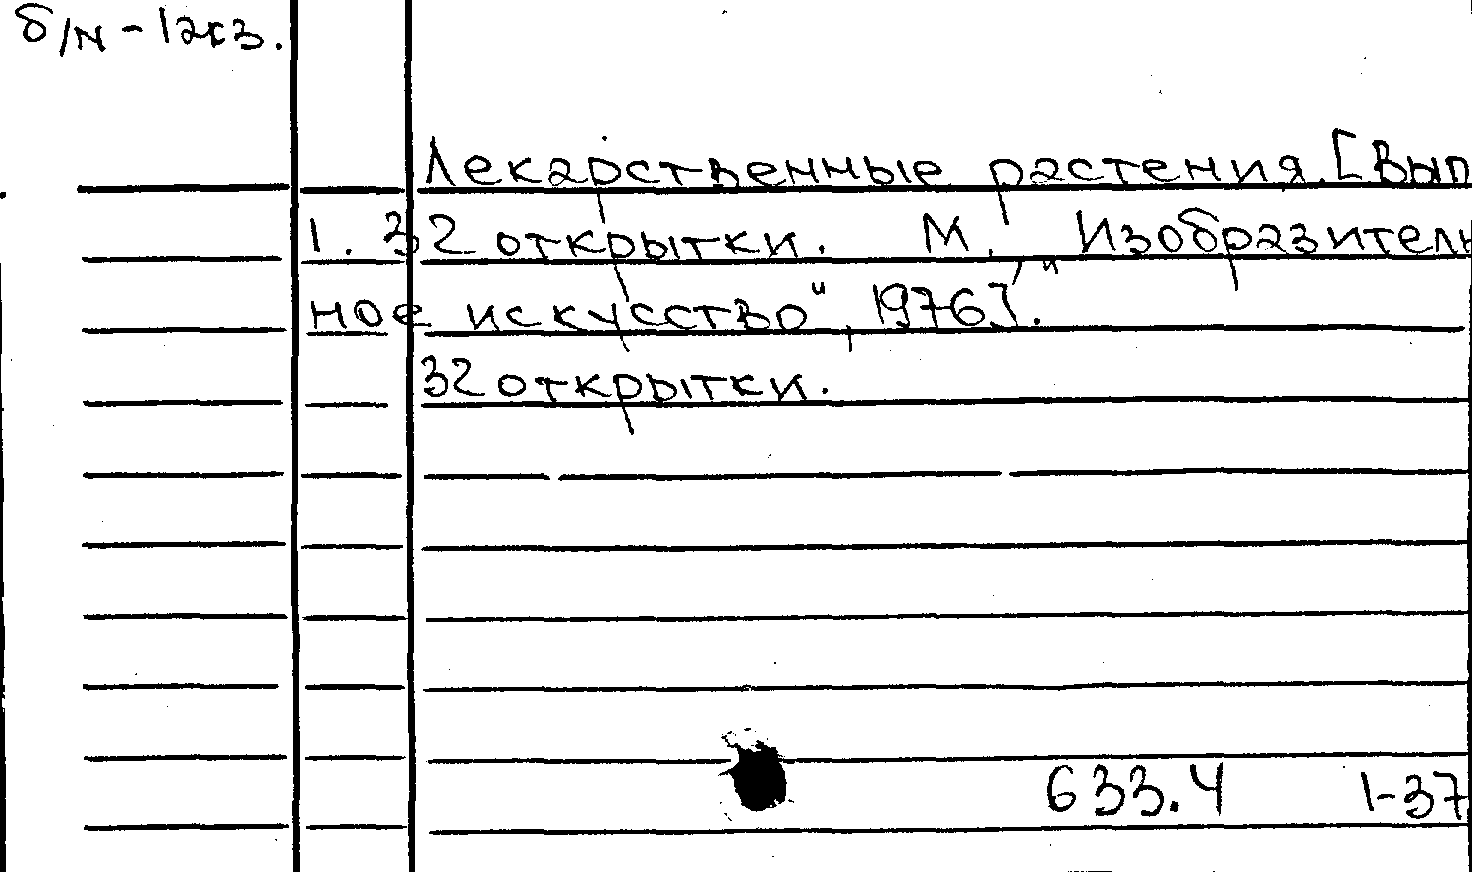 б/н - 1экз.
Лекарственные растения. [Вып
1. 32 открытки. М., "Изобразитель
ное искусство", 1976].
32 открытки.
633.4 1-37